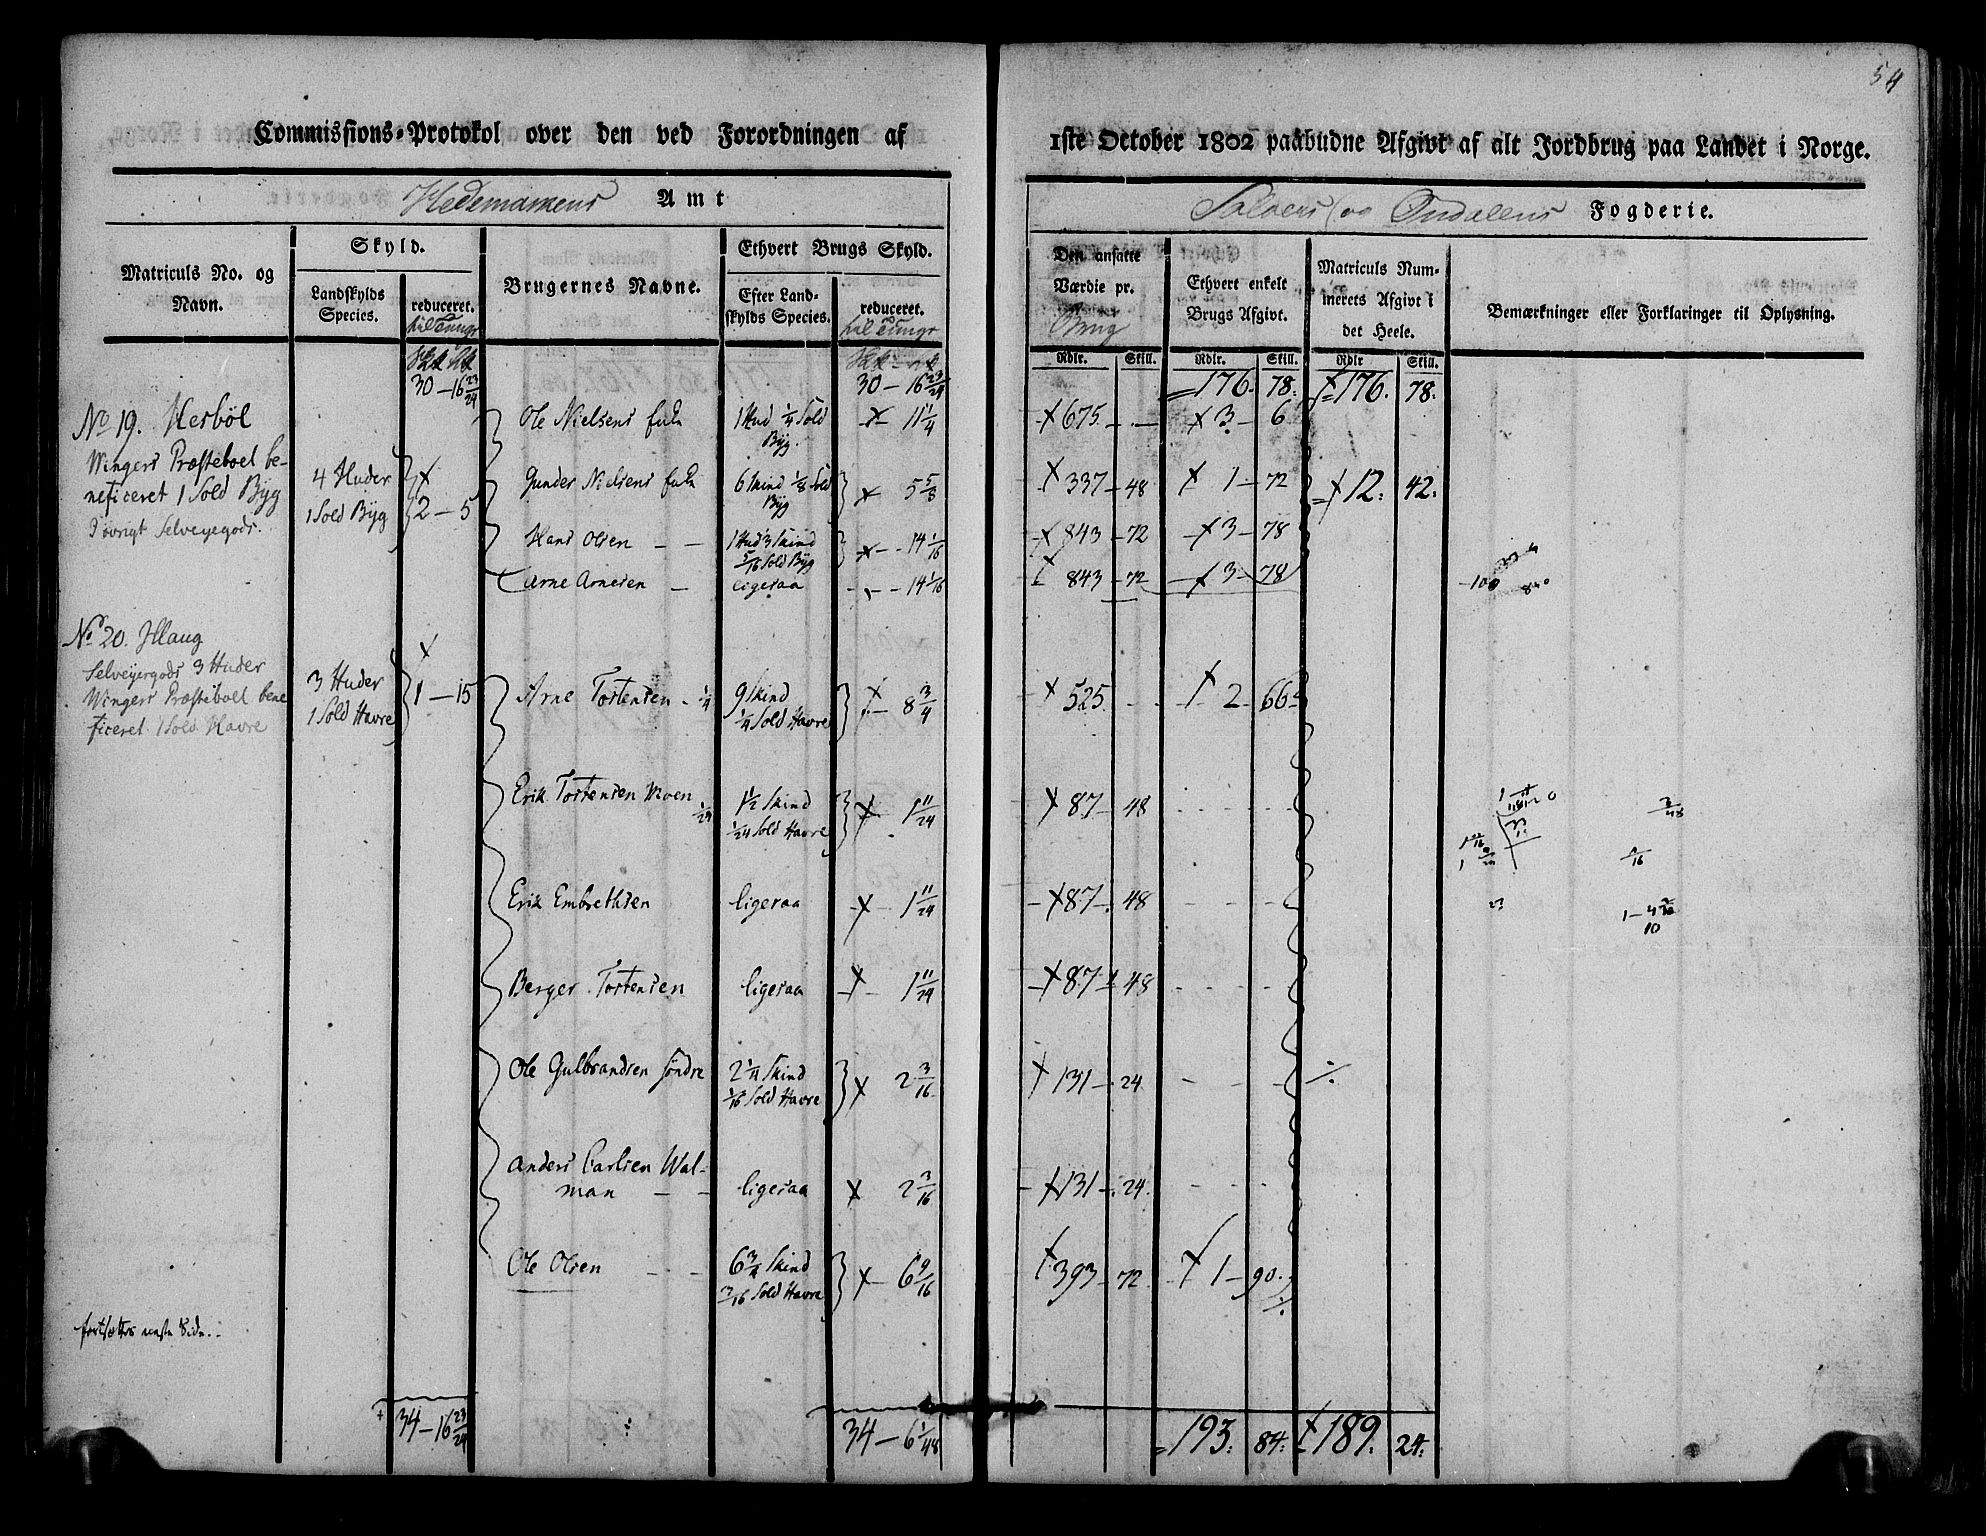 54
Commissions-Protokol over den ved Forordningen af 1ste October 1802 paabudne Afgivt af alt Jordbrug paa Landet i Norge.
Hedemarkens Amt
Soløers og Fogderie.
Matriculs No. og Navn.
Skyld.
Landskylds Species.
reduceret.
Brugernes Navne.
Ethvert Brugs Skyld.
Efter Landskylds Species.
reduceret.
Den ansatte Værdie pr. Brug
Ethvert enkelt Brugs Afgivt.
Matriculs Nummerets Afgivt i det Heele.
Bemærkninger eller Forklaringer til Oplysning.
Rdlr. Skill. Rdlr. Skill. Rdlr Skill.
30 – 16 23/24 30 – 16 23/24 176. 78. 176. 78.
No 19. Herböl
Ole Nielsens 1 Hud 1/4 Sold Byg. 11 1/4 675 3 – 6
Wingers Præsteboel be-
neficeret 1 Sold Byg
I øvrigt Selveyegods.
4 Huder
1 Sold Byg
2 – 5
Gunder Nielsens 6 Skind 1/8 Sold Byg 5 5/8 337 – 48 1 – 72 12. 42.
Hans Olsen 1 Hud 3 Skind 5/16 Sold Byg 14 1/16 843 – 72 3 – 78
Arne Arnesen ligeraa 14 1/16 843 – 72 3 – 78
No 20. Haug
Selveyergods 3 Huder
Wingers Præsteboel bene
ficeret 1 Sold Havre
3 Huder
1 Sold Havre
1 – 15
Arne Tostensen 1/4 9 Skind 1/4 Sold Havre 8 3/4 525 2 66
Erik Tostensen Moen 1/24 1 1/2 Skind 1/24 Sold Havre 1 11/24 87 – 48
Erik Embrethsen ligeraa 1 11/24 87 – 48
Berger Tostensen ligeraa 1 11/24 87 – 48
Ole Gulbrandsen Søndre 2 1/4 Skind 1/16 Sold Havre 2 3/16 131 – 24
Anders Carlsen Wal-
man ligeraa 2 3/16 131 – 24
Ole Olsen 6 3/4 Skind 3/16 Sold Havre 6 9/16 393 – 72 1 – 90
fortsættes neste Side.
34 – 16 23/24 34 – 6 1/48 193. 84. 189. 24.